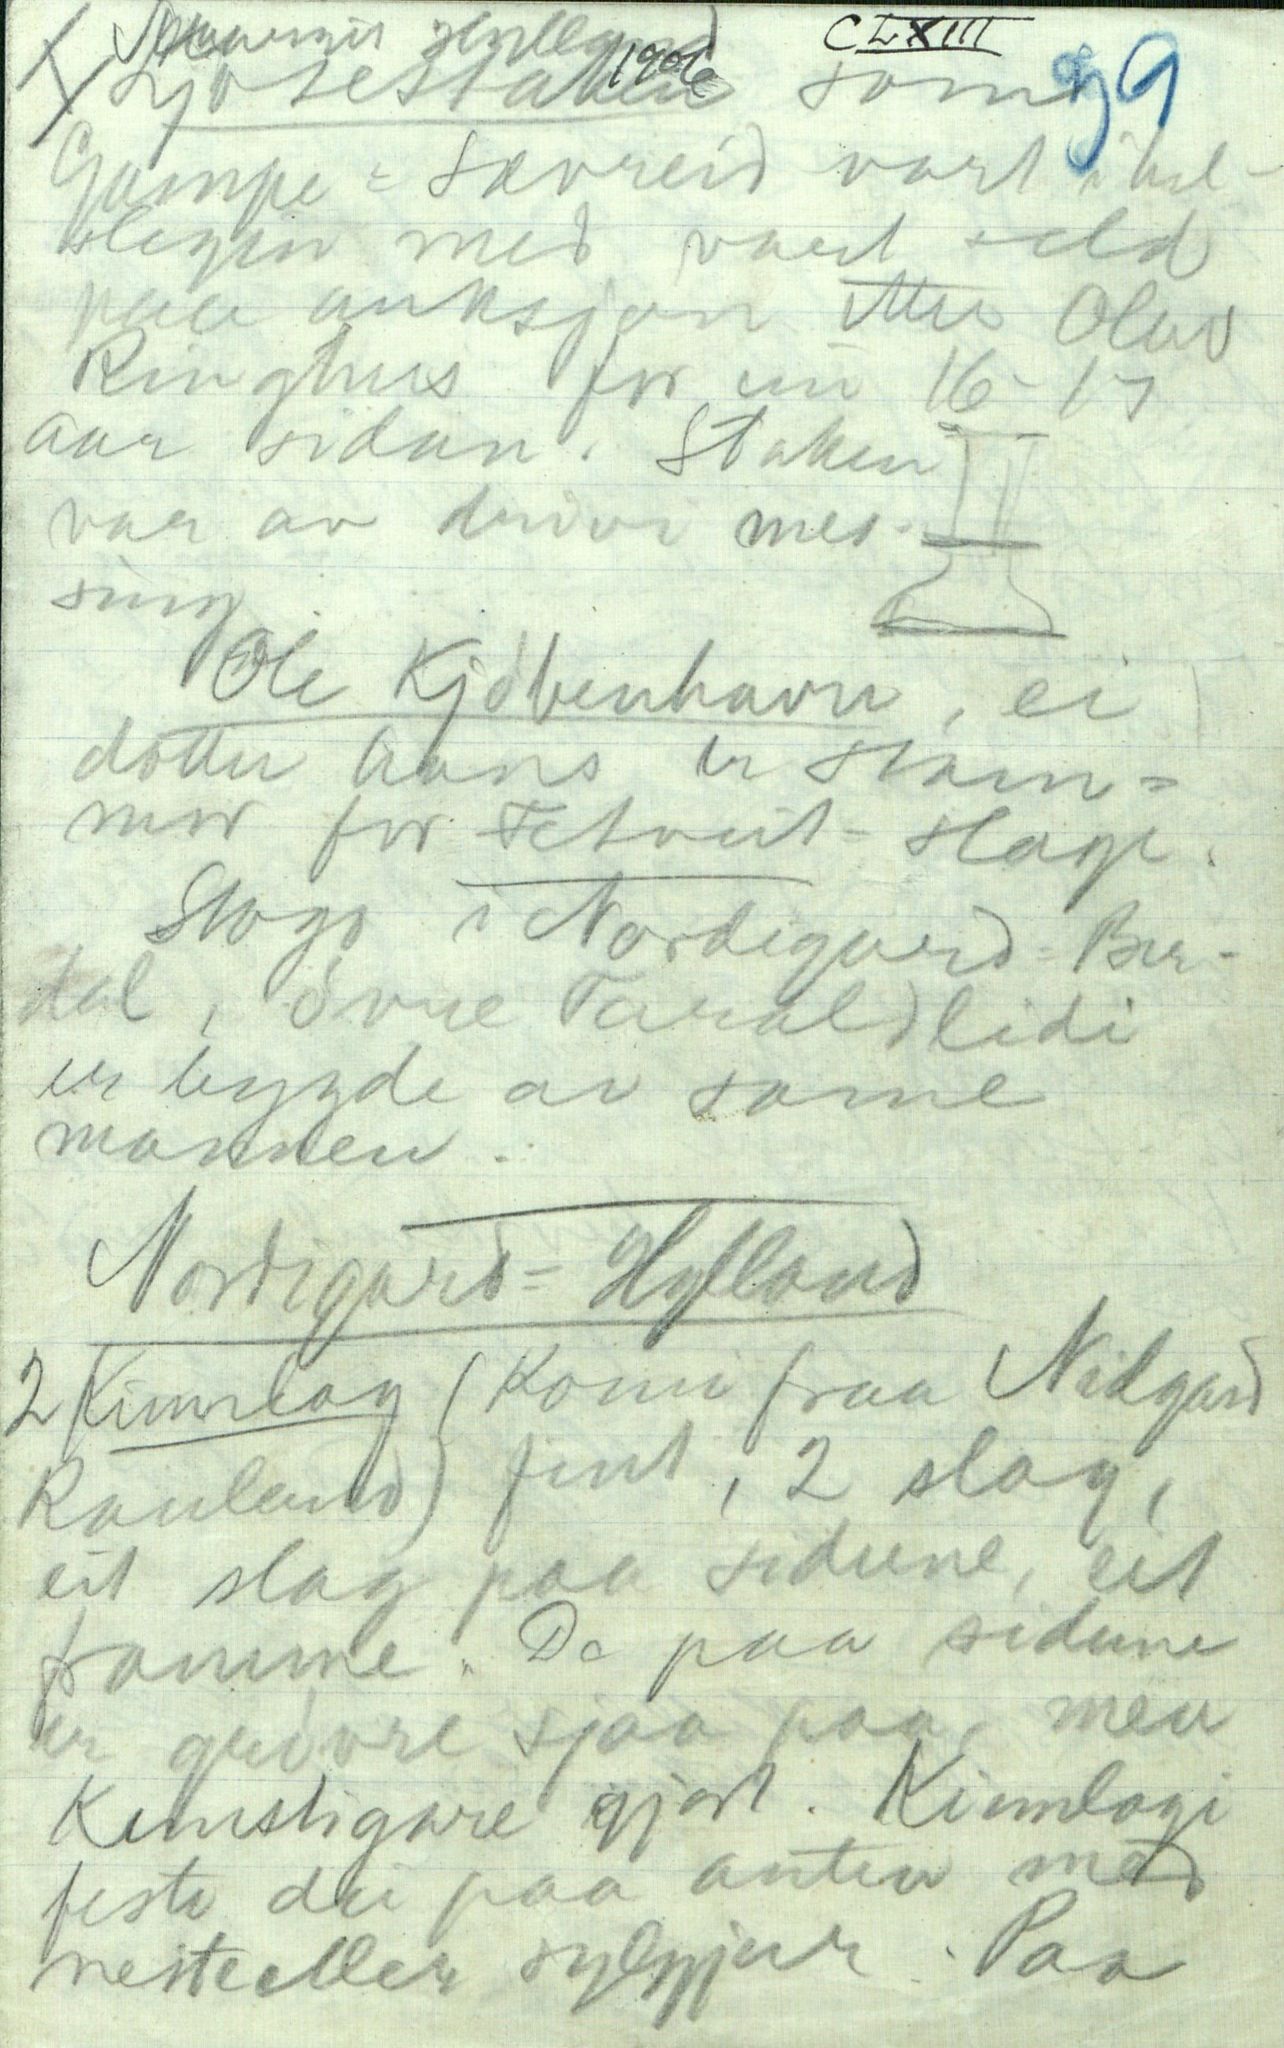 Hylland 1906 CLXIII 99
Ljosestaken som
Gampe = Sævreid vart ihel-
slegen med vart seld
paa auksjon etter Olav
Ringhus for ein 16-17
aar sidan. Staken
var av drivi mes-
sing
Ole Kjöbenhavn, ei
dotter hans er stam=
mor for Tetveit-slage.
Stogo i Nordigard-Ber-
dal, övre Taraldlidi
er bygde av same
mannen.
Nordigard=Hylland
2 Kinnlag (komi fraa Nidgard
Rauland) fint, 2 slag,
eit slag paa sidune, eit
framme. De paa sidune
er grövre sjaa paa, men
kunstigare gjort. Kinnlagi
feste dei paa anten med
neste eller sylgjur. Paa